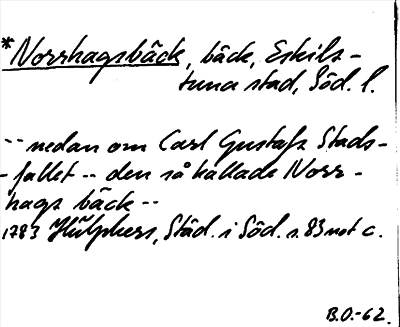 *Norrhagsbäck, bäck, Eskils-
tuna stad, Söd. l.
-- nedan om Carl Gustafs Stads-
-fallet -- den så kallade Norr-
hags bäck --
1783 Hülphers, Städ. i Söd. s. 83 not c.
B.O.-62.